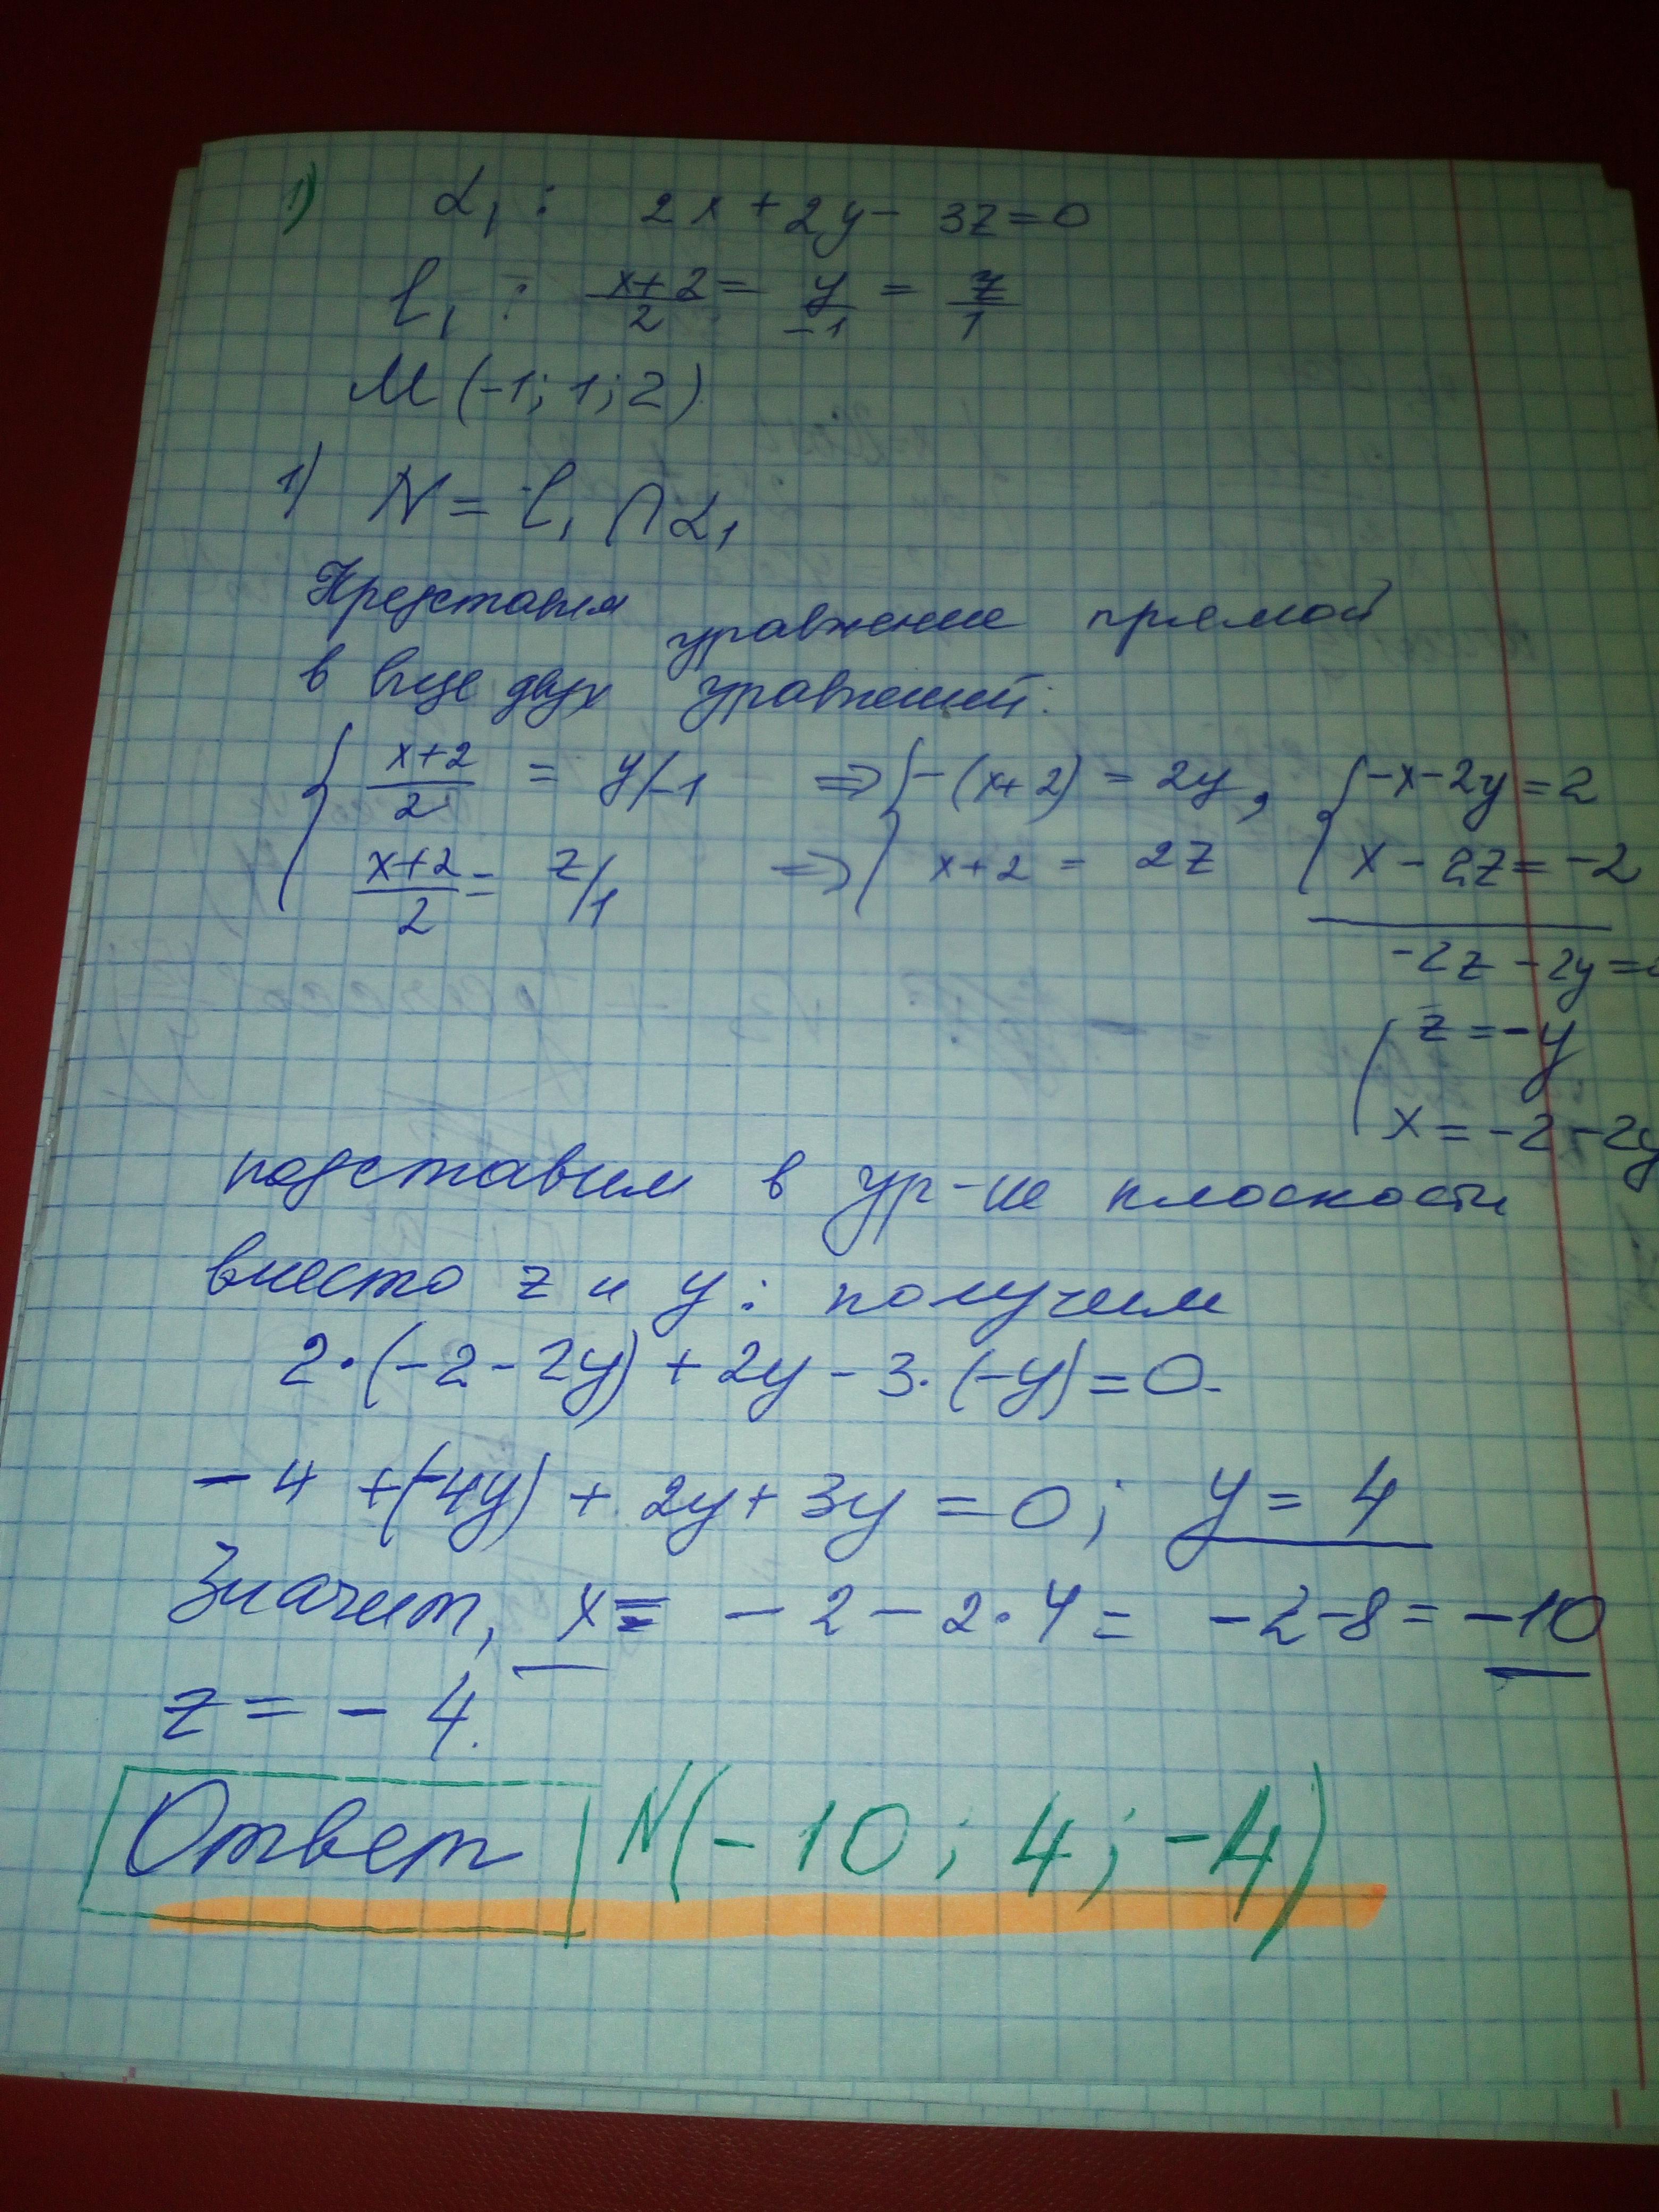 1) α₁ : 2x + 2y - 3z = 0
l₁ : (x+2)/2 = y/-1 = z/1
M (-1; 1; 2)
1) N = l₁ ∩ α₁
Представим уравнение прямой
в виде двух уравнений:
{ (x+2)/2 = y/-1 ⇒ { -(x+2) = 2y, { -x-2y=2
(x+2)/2 = z/1 ⇒ x+2 = 2z x - 2z = -2
-2z - 2y =
{ z = -y
x = -2-2y
подставим в ур-ие плоскости
вместо z и y: получим
2·(-2-2y) + 2y - 3·(-y) = 0.
-4 +(-4y) + 2y + 3y = 0; y = 4
Значит, x = -2 - 2·4 = -2-8 = -10
z = -4.
Ответ N(-10; 4; -4)